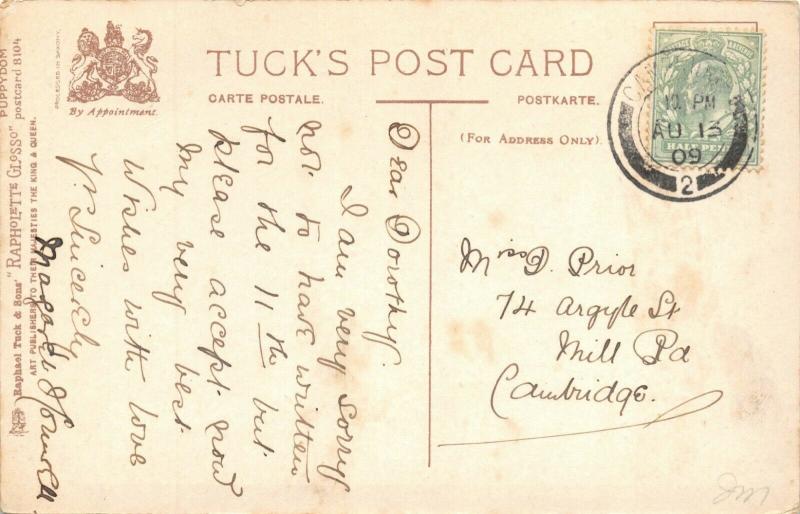 TUCK'S POST CARD
CARTE POSTALE.
POSTKARTE.
(FOR ADDRESS ONLY).
By Appointment.
PROCESSED IN SAXONY.
PUPPYDOM
Raphael Tuck & Sons' "RAPHOLETTE GLOSSO" postcard 8104
ART PUBLISHERS TO THEIR MAJESTIES THE KING & QUEEN.
10 PM
AU 13
09
2
HALF PEN
Dear Dorothy.
I am very sorry
not to have written
for the 11th but
please accept now
my very best
Wishes with love
Yr. Sincerely
Miss D. Prior
74 Argyle St
Mill Rd
Cambridge.